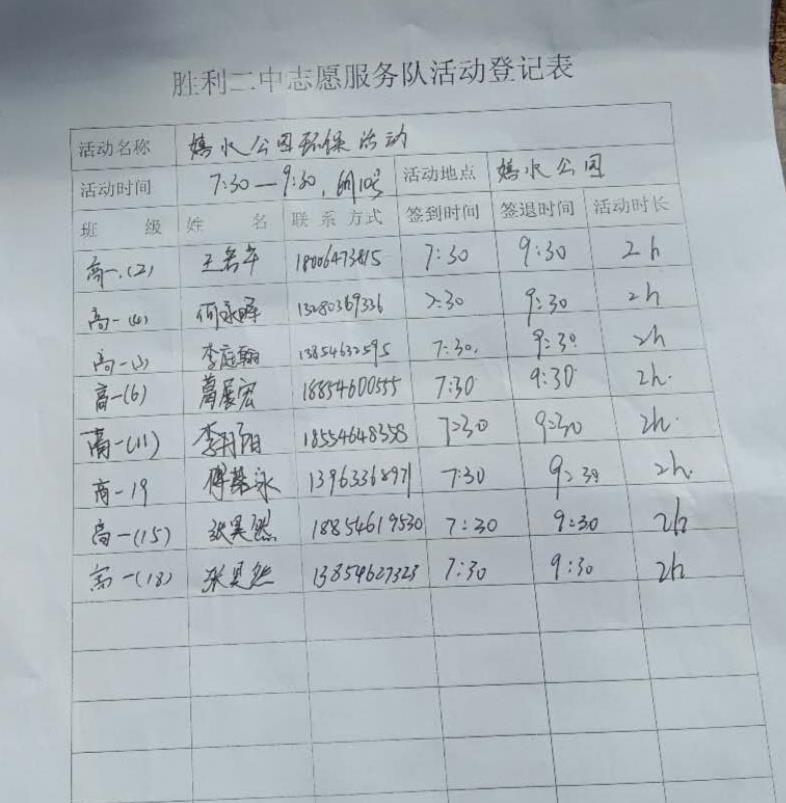 胜利二中志愿服务队活动登记表
活动名称 嫣水公园环保活动
活动时间 7:30—9:30, 6月10号 活动地点 嫣水公园
班 级 姓 名 联系方式 签到时间 签退时间 活动时长
高一.(2) 王若年 18006473815 7:30 9:30 2h
高一(4) 何永晖 13280369336 7:30 9:30 2h
高一(3) 李庭翰 13854632595 7:30. 9:30 2h
高一(6) 葛展宏 18854600555 7:30 9:30 2h.
高一(11) 李阳 18554648358 7:30 9:30 2h.
高一19 傅慕泳 13963368971 7:30 9:30 2h.
高一(15) 张昊然 18854619530 7:30 9:30 2h
高一(18) 张昊然 13854627323 7:30 9:30 2h